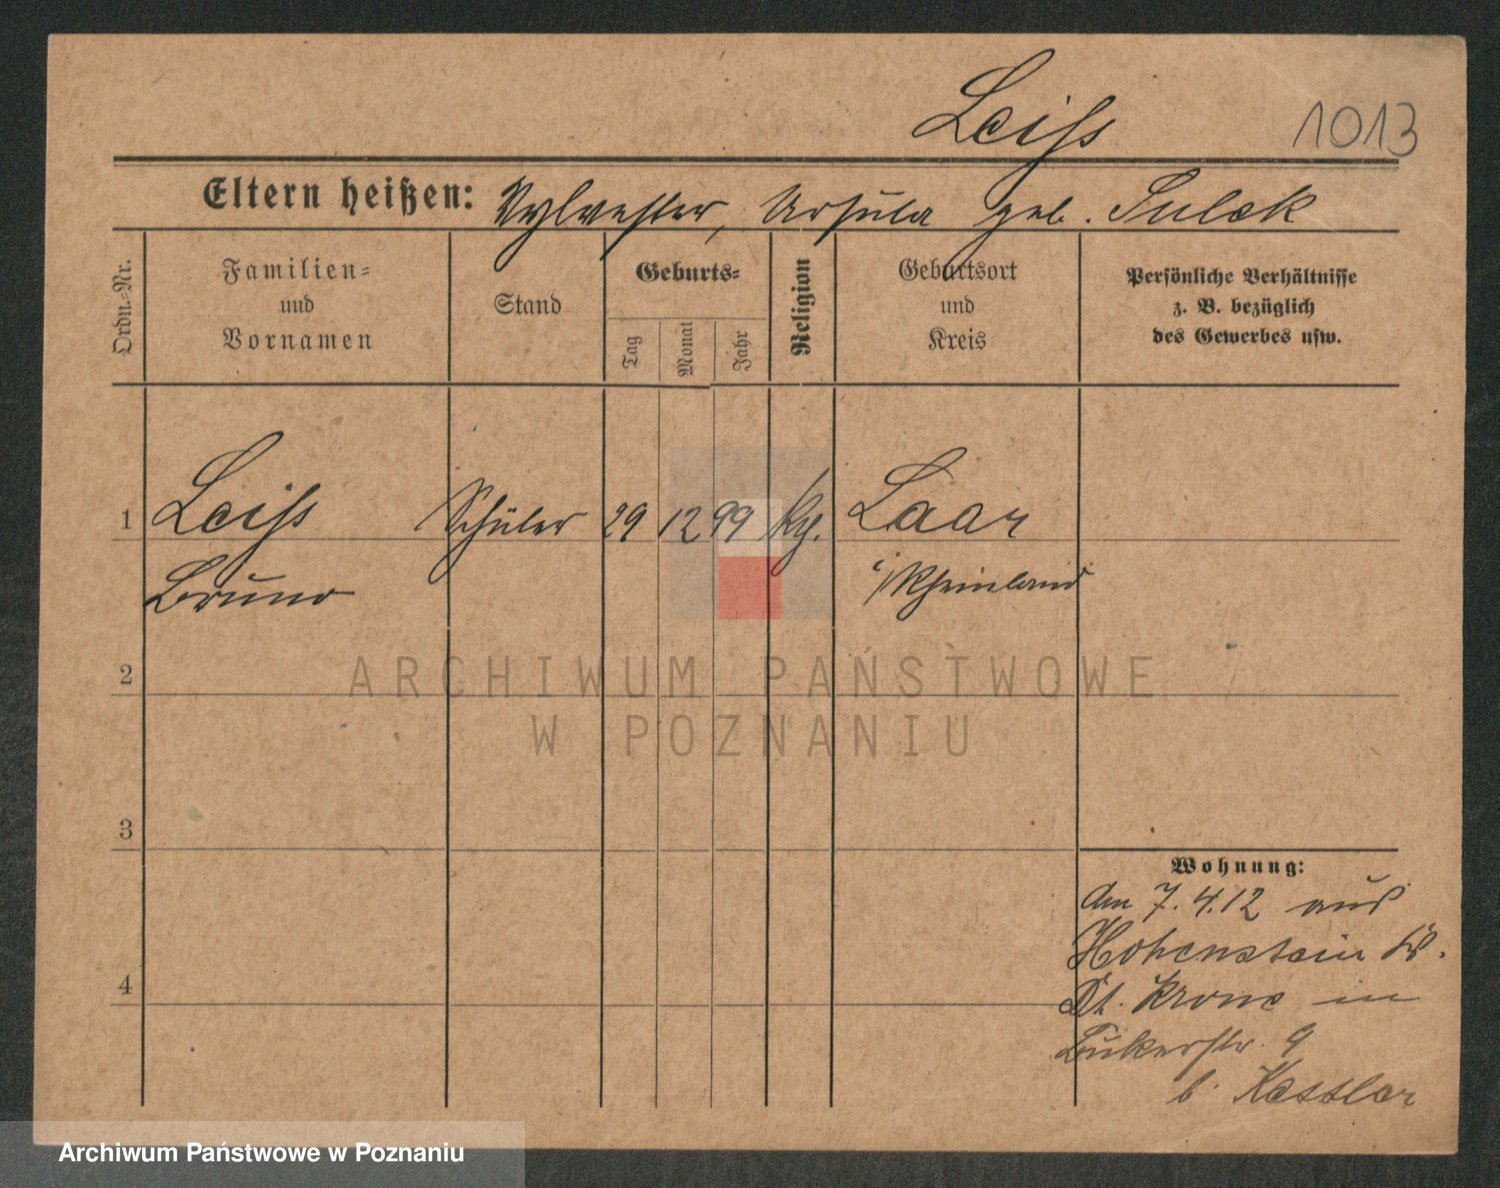 Leiss 1013
Eltern heißen: Sylvester, Ursula geb. Sulek
Ordn.-Nr.
Familien-
und
Vornamen
Stand
Geburts-
Tag
Monat
Jahr
Religion
Geburtsort
und
Kreis
Persönliche Verhältnisse
z. B. bezüglich
des Gewerbes usw.
1 Leiss Schüler 29 12 99 Laar
Bruno i/Rheinland
2
ARCHIWUM PAŃSTWOWE
W POZNANIU
3
Wohnung:
Am 7.4.12 aus
Hohenstein Kr.
4
Dt. Krone in
Bukerstr. 9
b. Kessler
Archiwum Państwowe w Poznaniu